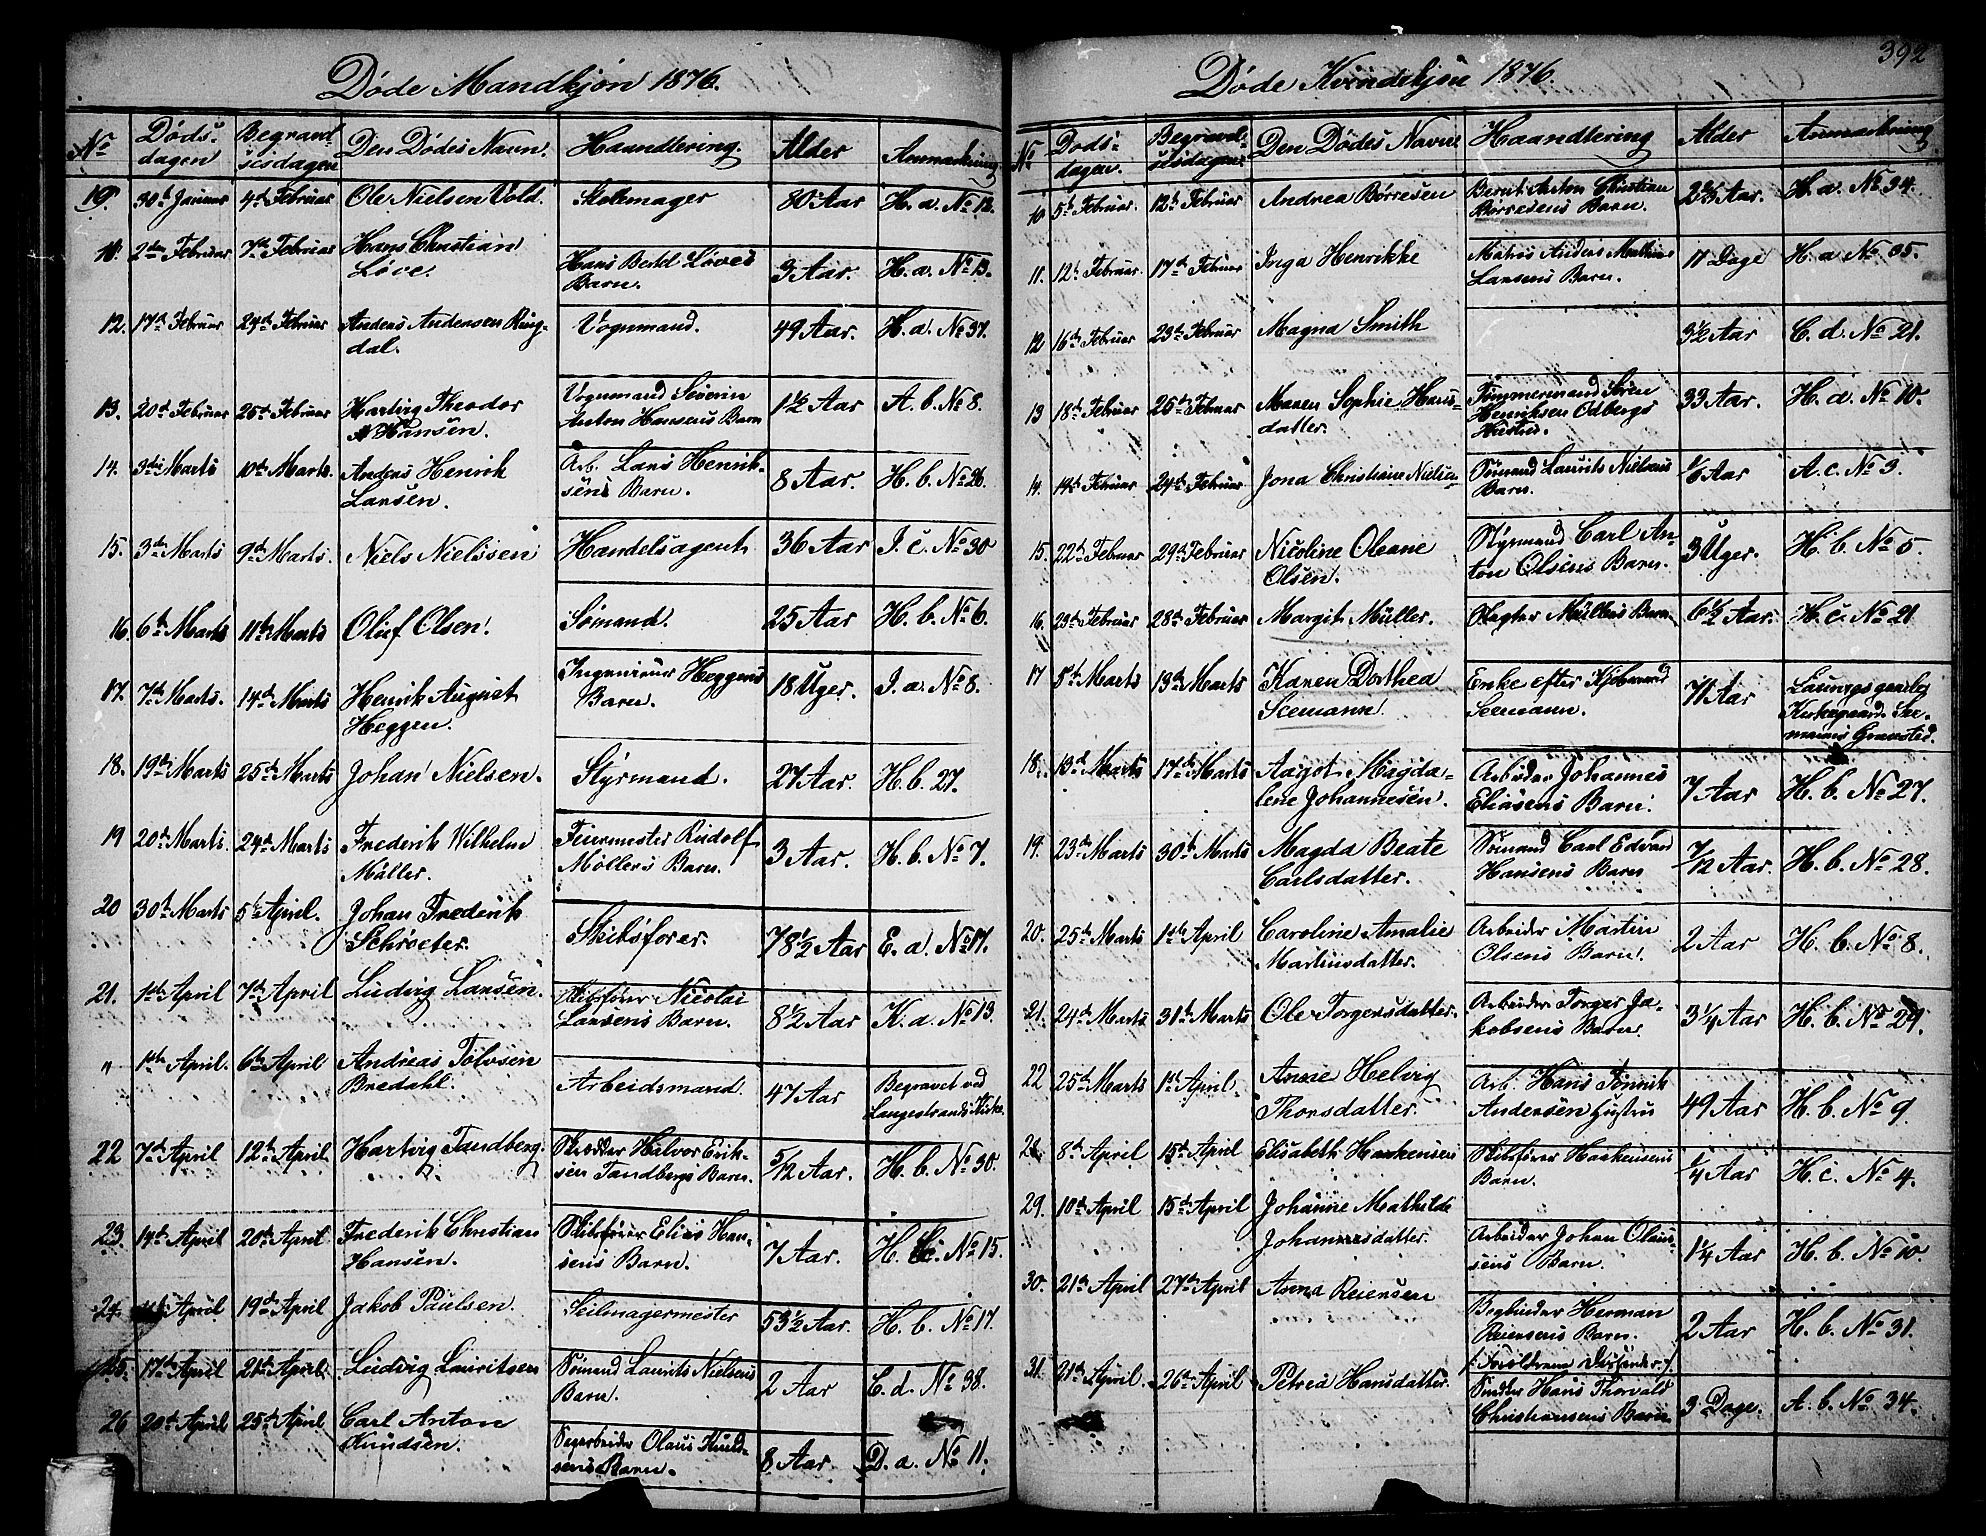 392
Døde Mandkjøn 1876.
No Dødsdagen Begravelsesdagen Den Dødes Navn. Haandtering. Alder Anmærkning
10. 30te Januar 4de Februar Ole Nielsen Vold. Skomager 80 Aar H. a. No 12.
10. 2den Februar 7de Februar Hans Christian
Løve. Hans Bertel Løves
Barn. 3 Aar. H. a. No 13.
12. 17de Februar 24de Februar Anders Andersen Ring-
dal. Vognmand. 49 Aar. H. a. No 37.
13. 20de Februar 26de Februar Hartvig Theodor
Hansen. Vognmand Severin
Anton Hansens Barn 1 1/2 Aar A. b. No 8.
14. 3die Marts 10de Marts. Andreas Henrik
Larsen. Arb. Lars Henrik-
sens Barn. 8 Aar. H. b. No 26.
15. 3die Marts 9de Marts. Niels Nielssen Handelsagent 36 Aar I. c. No 30
16. 6te Marts 11te Marts Oluf Olsen. Sømand. 25 Aar H. b. No 6.
17. 7de Marts. 14de Marts Henrik August
Heggen. Ingenieur Heggens
Barn. 18 Uger. I. a. No 8.
18. 19de Marts 25de Marts Johan Nielsen. Styrmand. 27 Aar. H. b. 27.
19 20de Marts. 24de Marts Frederik Wilhelm
Müller. Feiermester Rudolf
Møllers Barn. 3 Aar. H. b. No 7.
20 30te Marts 5te April. Johan Frederik
Schrøeter. Skibsfører. 78 1/2 Aar E. a. No 17.
21. 1ste April 7de April Ludvig Larsen. Skibsfører Nicolai
Larsens Barn. 8 1/2 Aar K. a. No 13.
" 1ste April. 6te April Andreas Tolvsen
Bredahl. Arbeidsmand. 47 Aar Begravet ved
Langestrands Kirke.
22 7de April 12te April Hartvig Tandberg. Skrædder Hilvor Erik-
sen Tandbergs Barn. 5/12 Aar. H. b. No 30.
23. 14de April 20de April Frederik Christian
Hansen. Skibsfører Elias Han-
sens Barn. 7 Aar. H. c. No 15.
24. April 19de April Jakob Paulsen. Seilmagermester 53 1/2 Aar. H. b. No 17.
25. 17de April 21de April. Ludvig Lauritsen Sømand Laurits Nielsens
Barn. 2 Aar C. d. No 38.
26 20de April 25de April Carl Anton
Knudsen. Olaus Knud-
sens Barn. 8 Aar D. a. No 11.
Døde Kvindekjøn 1876.
No Dødsdagen. Begravelsesdagen Den Dødes Navn Haandtering Alder Anmærkning
10. 5te Februar. 12te Februar Andrea Børresen Bernt Anton Christian
Børresens Barn. 2 2/3 Aar. H. a. No 34.
11. 12te Februar 17de Februar Inga Henrikke Matros Anders Mathias
Larsens Barn. 17 Dage H. a No 35.
12 16de Februar 23de Februar Magna Smith 3 1/2 Aar C. d. No 21.
13 18de Februar 25de Februar Maren Sophie Hans-
datter. Tømmermand Søren
Henriksen Odbergs
Hustru. 33 Aar. H. a. No 10.
14. 14de Februar 24de Februar Jona Christiane Nielsen Sømand Laurits Nielsens
Barn. 1/6 Aar A. c. No 3.
15. 22de Februar 29de Februar Nicoline Oleane
Olsen. Styrmand Carl An-
ton Olsens Barn. 3 Uger. H. b. No 5.
16. 23de Februar 28de Februar Margit Müller. Slagter Müllers Barn 6 1/2 Aar. H. c. No 21
17 8de Marts 13de Marts Karen Dorthea
Seemann. Enke efter Kjøbmand
Seemann. 71 Aar Laurvigs gamle
Kirkegaard. See-
manns Gravsted.
18. 13de Marts 17de Marts Aagot Magda-
lene Johannesen. Arbeider Johannes
Eliasens Barn. 7 Aar H. b. No 27.
19. 23de Marts 30te Marts Magda Beate
Carlsdatter. Sømand Carl Edvard
Hansens Barn 7/12 Aar. H. b. No 28.
20. 25de Marts 1ste April Caroline Amalie
Martinsdatter. Arbeider Martin
Olsens Barn. 2 Aar H. b. No 8.
21. 24de Marts 31te Marts Ole Torgersdatter. Arbeider Torger Ja-
kobsens Barn. 3 1/4 Aar H. b. No 29.
22 25de Marts 1ste April. Anne Helvig
Thorsdatter. Arb. Hans Henrik
Andersen Hustru 49 Aar H. b. No 9.
8de April 15de April Elisabeth Haakensens Skibsfører Haakensens
Barn. 1/4 Aar H. c. No 4.
29. 10de April 15de April Johanne Mathilde
Johannesdatter. Arbeider Johan Olaus-
sens Barn. 1 1/4 Aar H. b. No 10.
30. 21de April 27de April Anna Reiersen Bogbinder Herman
Reiersens Barn. 2 Aar H. b. No 31.
31. 21de April. 26de April Petrea Hansdatter. /Forældrene Dissenter./
Hans Thorvald
Christiansens Barn. 3 Dage. A. b. No 34.